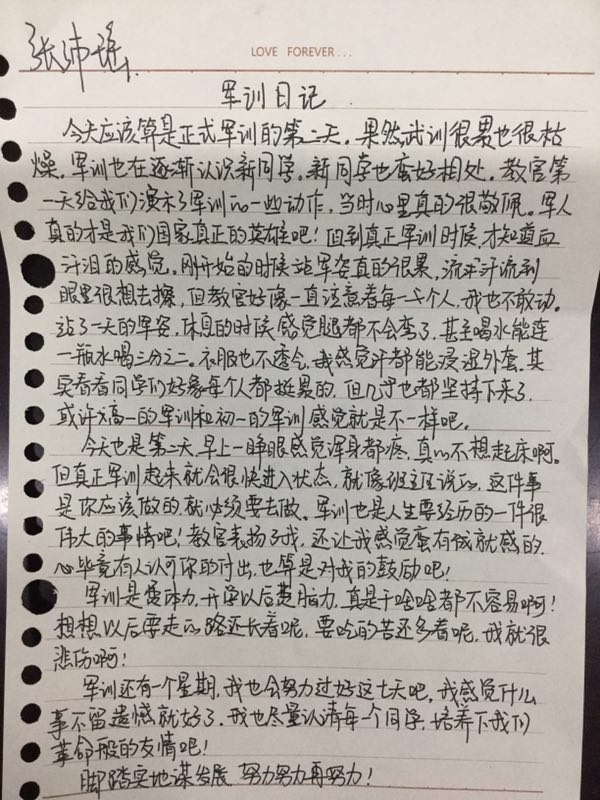 张沛瑶
LOVE FOREVER...
军训日记
今天应该算是正式军训的第二天。果然,武训很累也很枯
燥。军训也在逐渐认识新同学。新同学也蛮好相处。教官第
一天给我们演示了军训的一些动作,当时心里真的很敬佩。军人
真的才是我们国家真正的英雄吧!但到真正军训时候,才知道血
汗泪的感觉。刚开始的时候站军姿真的很累,流汗流到
眼里很想去擦,但教官好像一直注意着每一个人,我也不敢动。
站了一天的军姿,休息的时候感觉腿都不会弯了,甚至喝水能连
一瓶水喝三分之二。衣服也不透气,我感觉汗都能浸湿外套。其
实看看同学们好像每个人都挺累的,但几乎也都坚持下来了,
或许高一的军训和初一的军训感觉就是不一样吧。
今天也是第二天,早上一睁眼感觉浑身都疼,真的不想起床啊。
但真正军训起来就会很快进入状态,就像班主任说的,这件事
是你应该做的,就必须要去做。军训也是人生要经历的一件很
伟大的事情吧!教官表扬了我,还让我感觉蛮有成就感的,
心毕竟有人认可你的付出,也算是对我的鼓励吧!
军训是费体力,开学以后费脑力,真是干啥啥都不容易啊!
想想以后要走的路还长着呢,要吃的苦还多着呢,我就很
悲伤啊!
军训还有一个星期,我也会努力过好这七天吧,我感觉什么
事不留遗憾就好了。我也尽量认清每一个同学,培养下我们
革命般的友情吧!
脚踏实地谋发展 努力努力再努力!